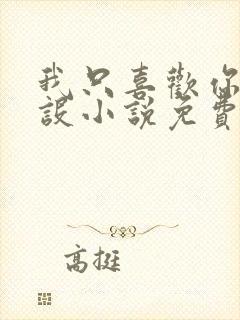 我只喜歡你
設小說免費
高挺